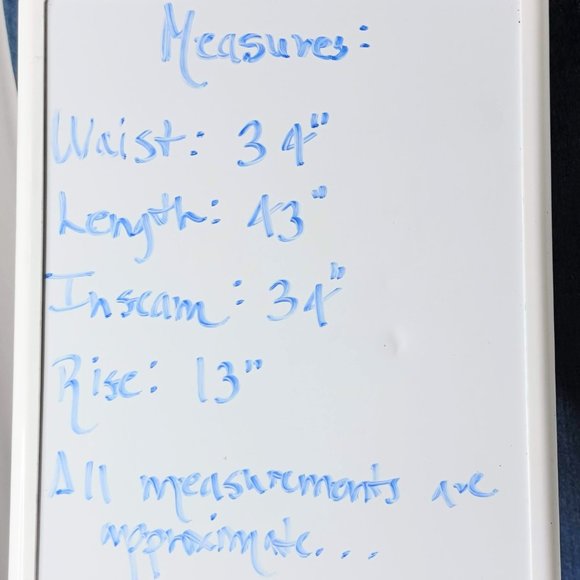 Measures:
Waist: 34"
Length: 43"
Inseam: 34"
Rise: 13"
All measurements are
approximate...